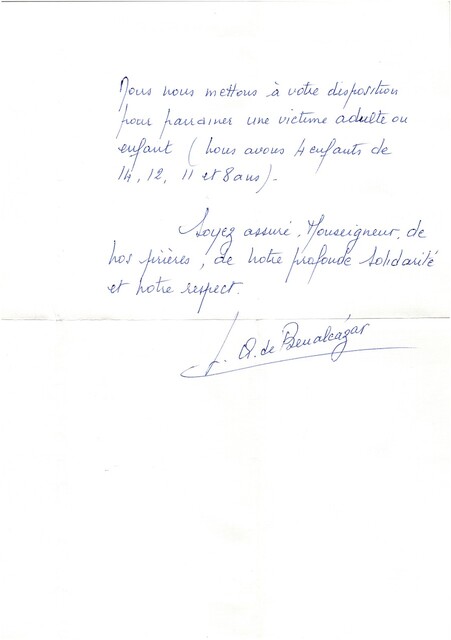 Nous nous mettons à votre disposition
pour parrainer une victime adulte ou
enfant (nous avons 4 enfants de
14, 12, 11 et 8 ans).
Soyez assuré, Monseigneur, de
nos prières, de notre profonde solidarité
et notre respect.
Q. de Benalcázar